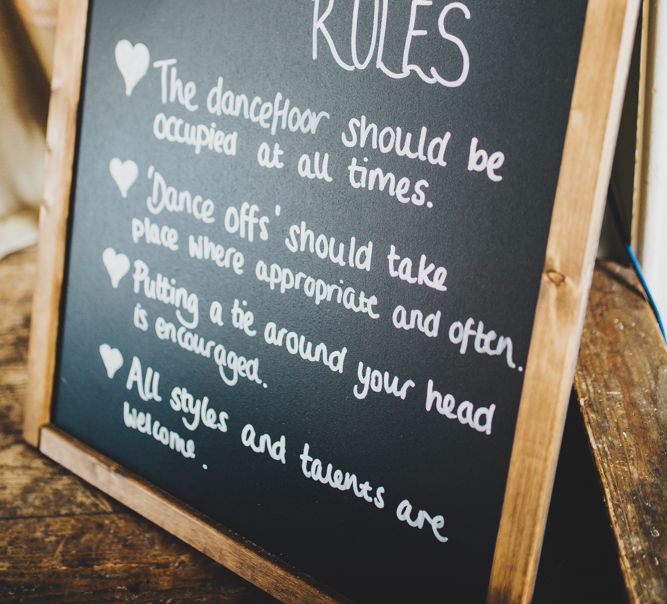 RULES
The dancefloor should be
occupied at all times.
'Dance Offs' should take
place where appropriate and often.
Putting a tie around your head
is encouraged.
All styles and talents are
welcome.